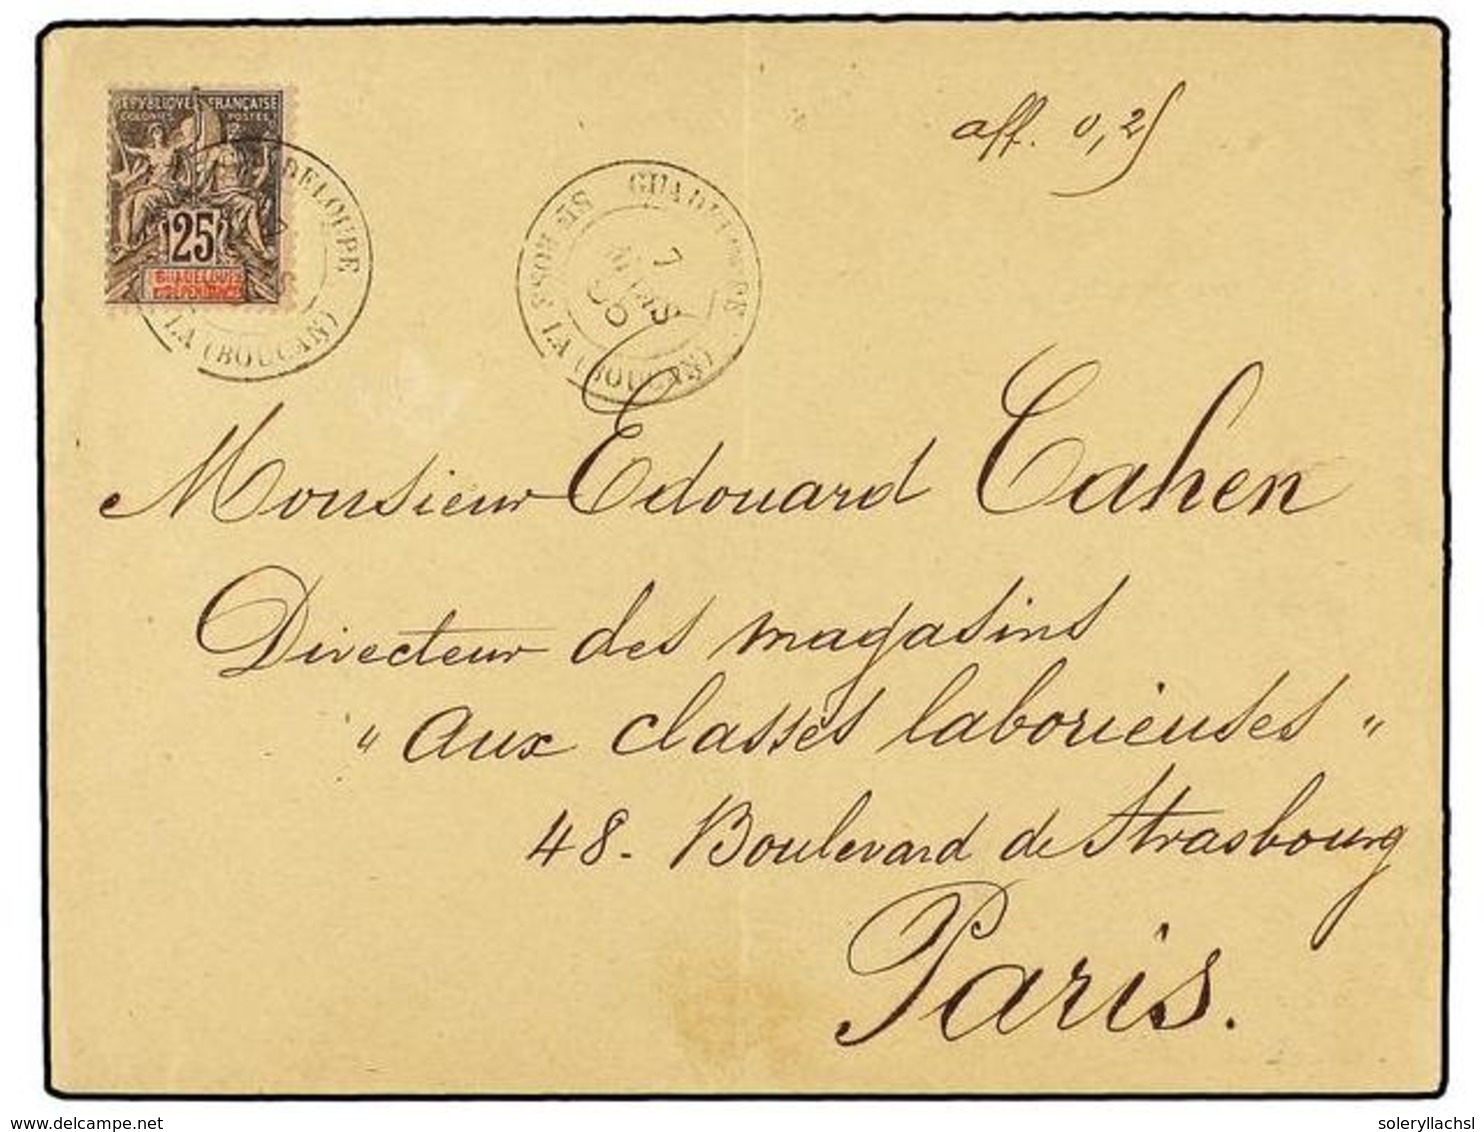 RÉPUBLIQUE FRANÇAISE
COLONIES POSTES
25
GUADELOUPE
ET DÉPENDANCES
DELOUPE
LA (BOUCAN)
aff. 0,25
STE ROSE
GUADELOUPE
7
MARS
LA (BOUCAN)
Monsieur Edouard Cahen
Directeur des magasins
" aux classes laborieuses "
48 - Boulevard de Strasbourg
Paris.
soleryllachsl